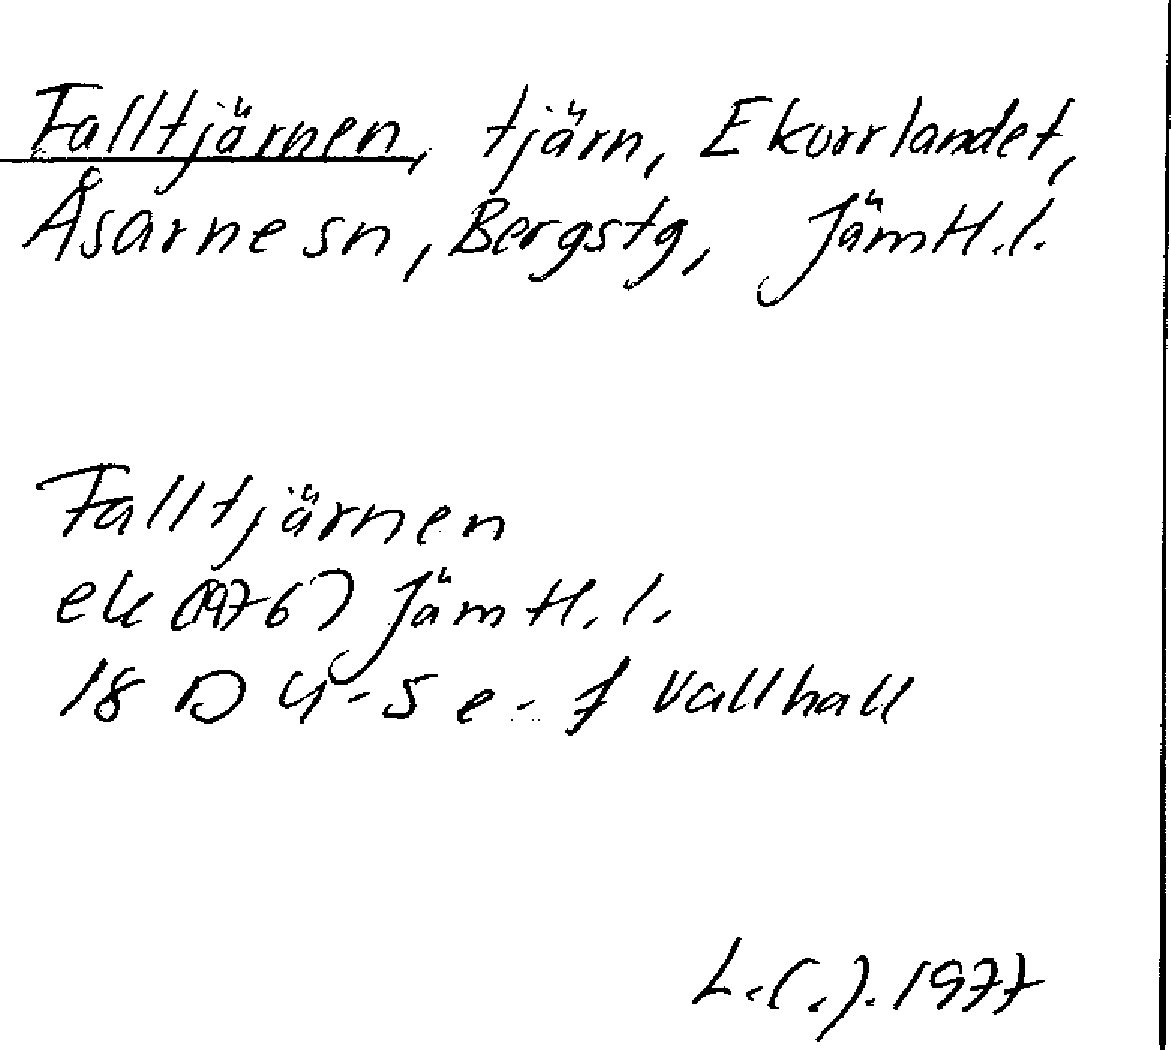 Falltjärnen, tjärn, Ekorrlandet,
Åsarne sn, Bergs tg, Jämtl.l.
Falltjärnen
ek (1976) Jämtl.l.
18 D 4-5 e-f Vallhall
1977